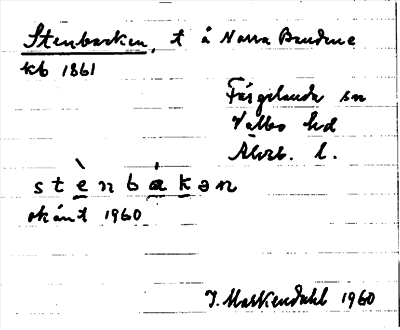 Stenbacken, t å Norra Bandene
kb 1861
Färgelanda sn
Valbo hd
Älvsb. l.
stὲnbákən
okänt 1960
J. Markendahl 1960